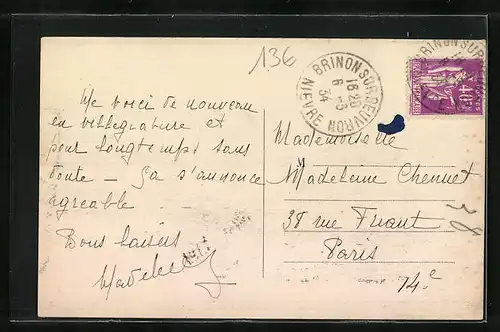 136
BRINON SUR BEUVRON
16 20
6 -3
34
NIEVRE
BRINON SUR
40c
Me voici de nouveau
en villegiature et
pour longtemps sans
doute - Ça s'annonce
agreable
Bons baisers
Mademoiselle
Madeleine Chennet
38 rue Friant
Paris
14.e
38